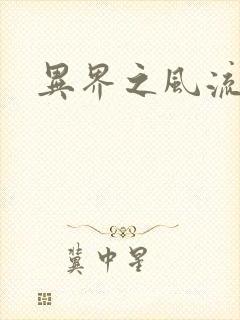 異界之風流
龔中星